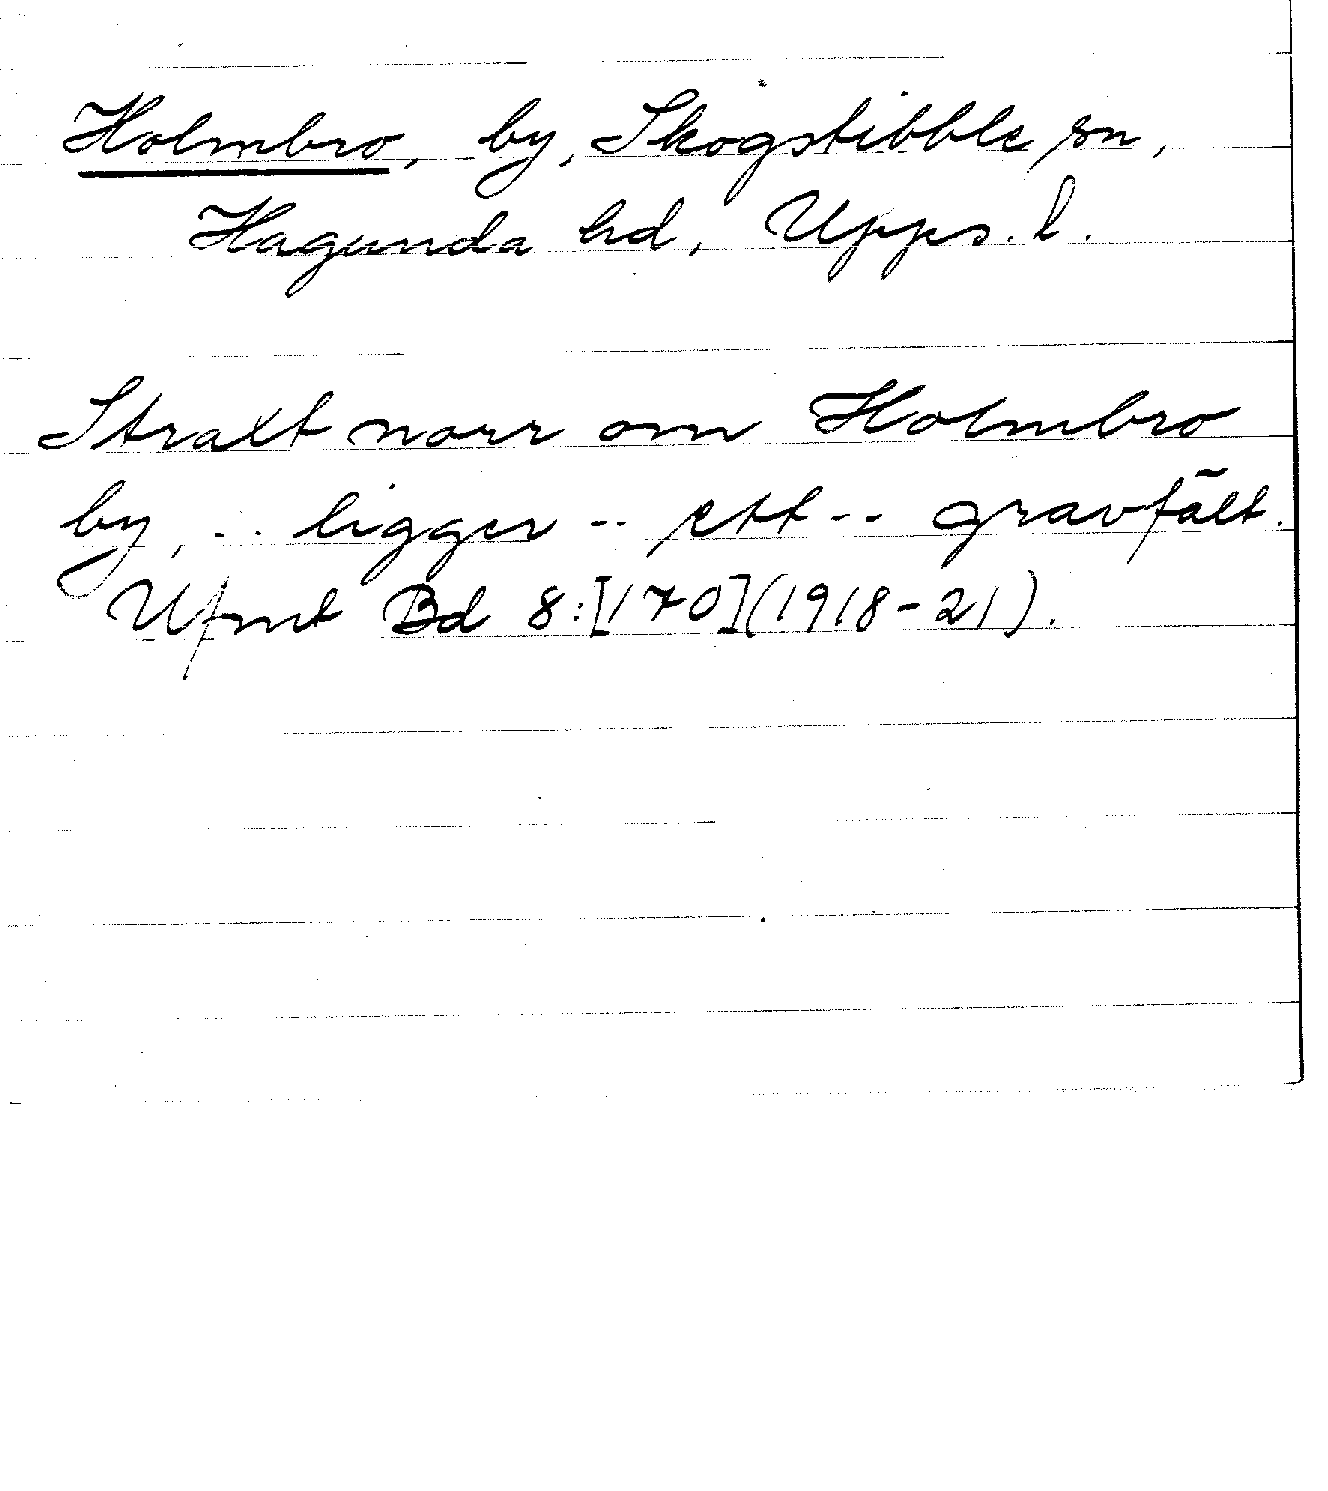 Holmbro, by, Skogstibble sn,
Hagunda hd, Upps. l.
Straxt norr om Holmbro
by, .. ligger -- ett -- gravfält.
Ufmt Bd 8:[170](1918-21).